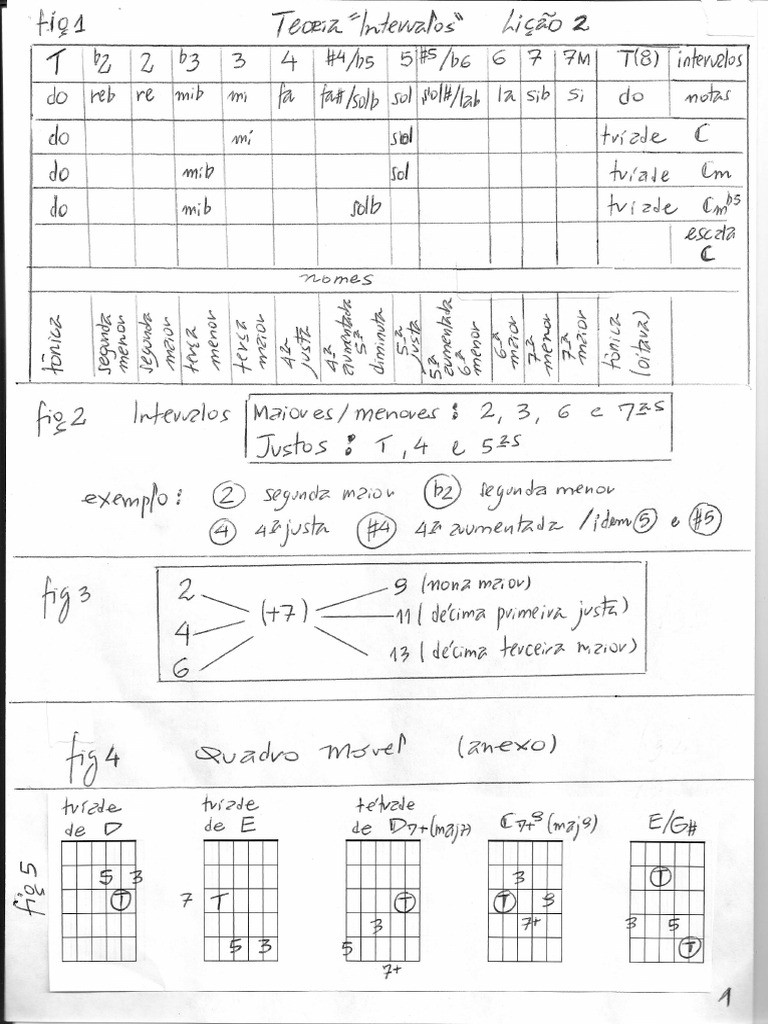 fig 1 Teoria "Intervalos" Lição 2
T b2 2 b3 3 4 #4/b5 5 #5/b6 6 7 7M T(8) intervalos
do reb re mib mi fa fa#/solb sol sol#/lab la sib si do notas
do mi sol tríade C
do mib sol tríade Cm
do mib solb tríade Cm b5
escala
C
nomes
tônica
segunda menor
segunda maior
terça menor
terça maior
4ª justa
4ª aumentada 5ª diminuta
5ª justa
5ª aumentada 6ª menor
6ª maior
7ª menor
7ª maior
tônica (oitava)
fig 2 Intervalos Maiores/menores : 2, 3, 6 e 7ªs
Justos : T, 4 e 5ªs
exemplo: 2 segunda maior b2 segunda menor
4 4ª justa #4 4ª aumentada /idem 5 e #5
fig 3
2 9 (nona maior)
4 (+7) 11 ( décima primeira justa)
6 13 ( décima terceira maior)
fig 4 Quadro móvel (anexo)
fig 5
tríade de D
5 3
T
tríade de E
7 T
5 3
tétrade de D7+(maj7)
T
3
5
7+
C7+9 (maj9)
3
T 9
7+
E/G#
T
3 5
T
1